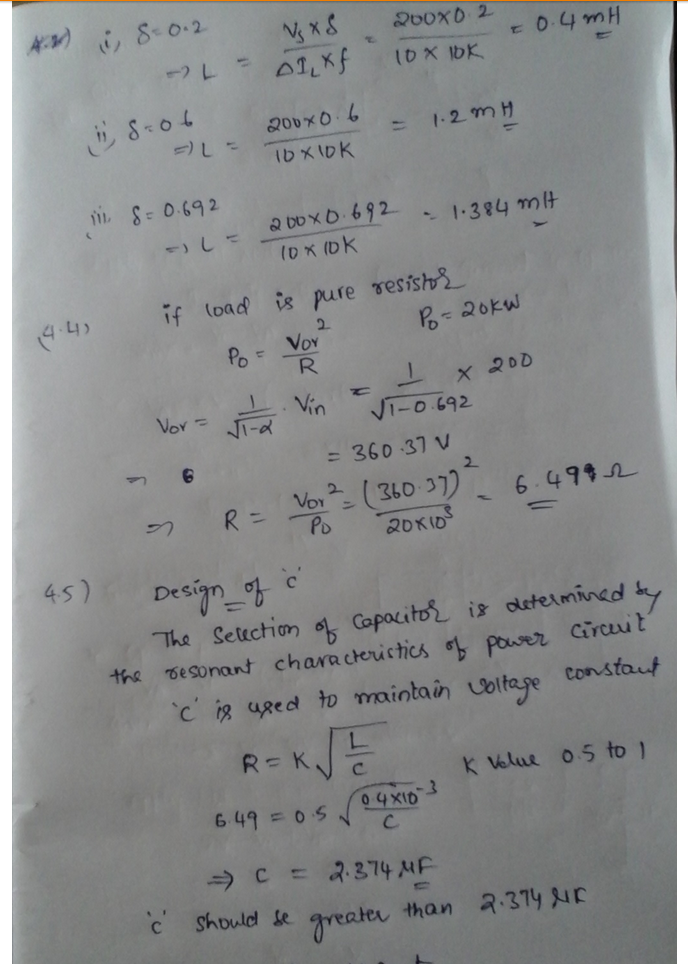 4.2) i, δ=0.2
⇒ L = Vs×δ / ΔIL×f = 200×0.2 / 10×10K = 0.4 mH
ii, δ=0.6
⇒ L = 200×0.6 / 10×10K = 1.2 mH
iii. δ=0.692
⇒ L = 200×0.692 / 10×10K = 1.384 mH
4.4) if load is pure resistor
Po = Vor² / R Po = 20KW
Vor = 1/√1-α · Vin = 1/√1-0.692 × 200
= 360.37 V
⇒ R = Vor²/Po = (360.37)² / 20×10³ = 6.49 Ω
4.5) Design of 'c'
The Selection of Capacitor is determined by
the resonant characteristics of power circuit
'c' is used to maintain voltage constant
R = K √L/C K Value 0.5 to 1
6.49 = 0.5 √0.4×10-3 / C
⇒ C = 2.374 μF
'c' should be greater than 2.374 μF